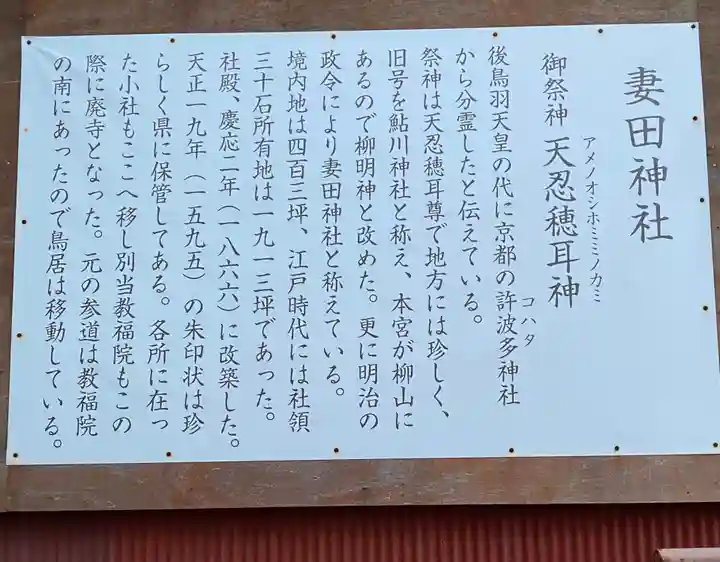 妻田神社
アメノオシホミミノカミ
御祭神 天忍穂耳神
コハタ
後鳥羽天皇の代に京都の許波多神社
から分霊したと伝えている。
祭神は天忍穂耳尊で地方には珍しく、
旧号を鮎川神社と称え、本宮が柳山に
あるので柳明神と改めた。更に明治の
政令により妻田神社と称えている。
境内地は四百三坪、江戸時代には社領
三十石所有地は一九一三坪であった。
社殿、慶応二年（一八六六）に改築した。
天正一九年（一五九五）の朱印状は珍
らしく県に保管してある。各所に在っ
た小社もここへ移し別当教福院もこの
際に廃寺となった。元の参道は教福院
の南にあったので鳥居は移動している。